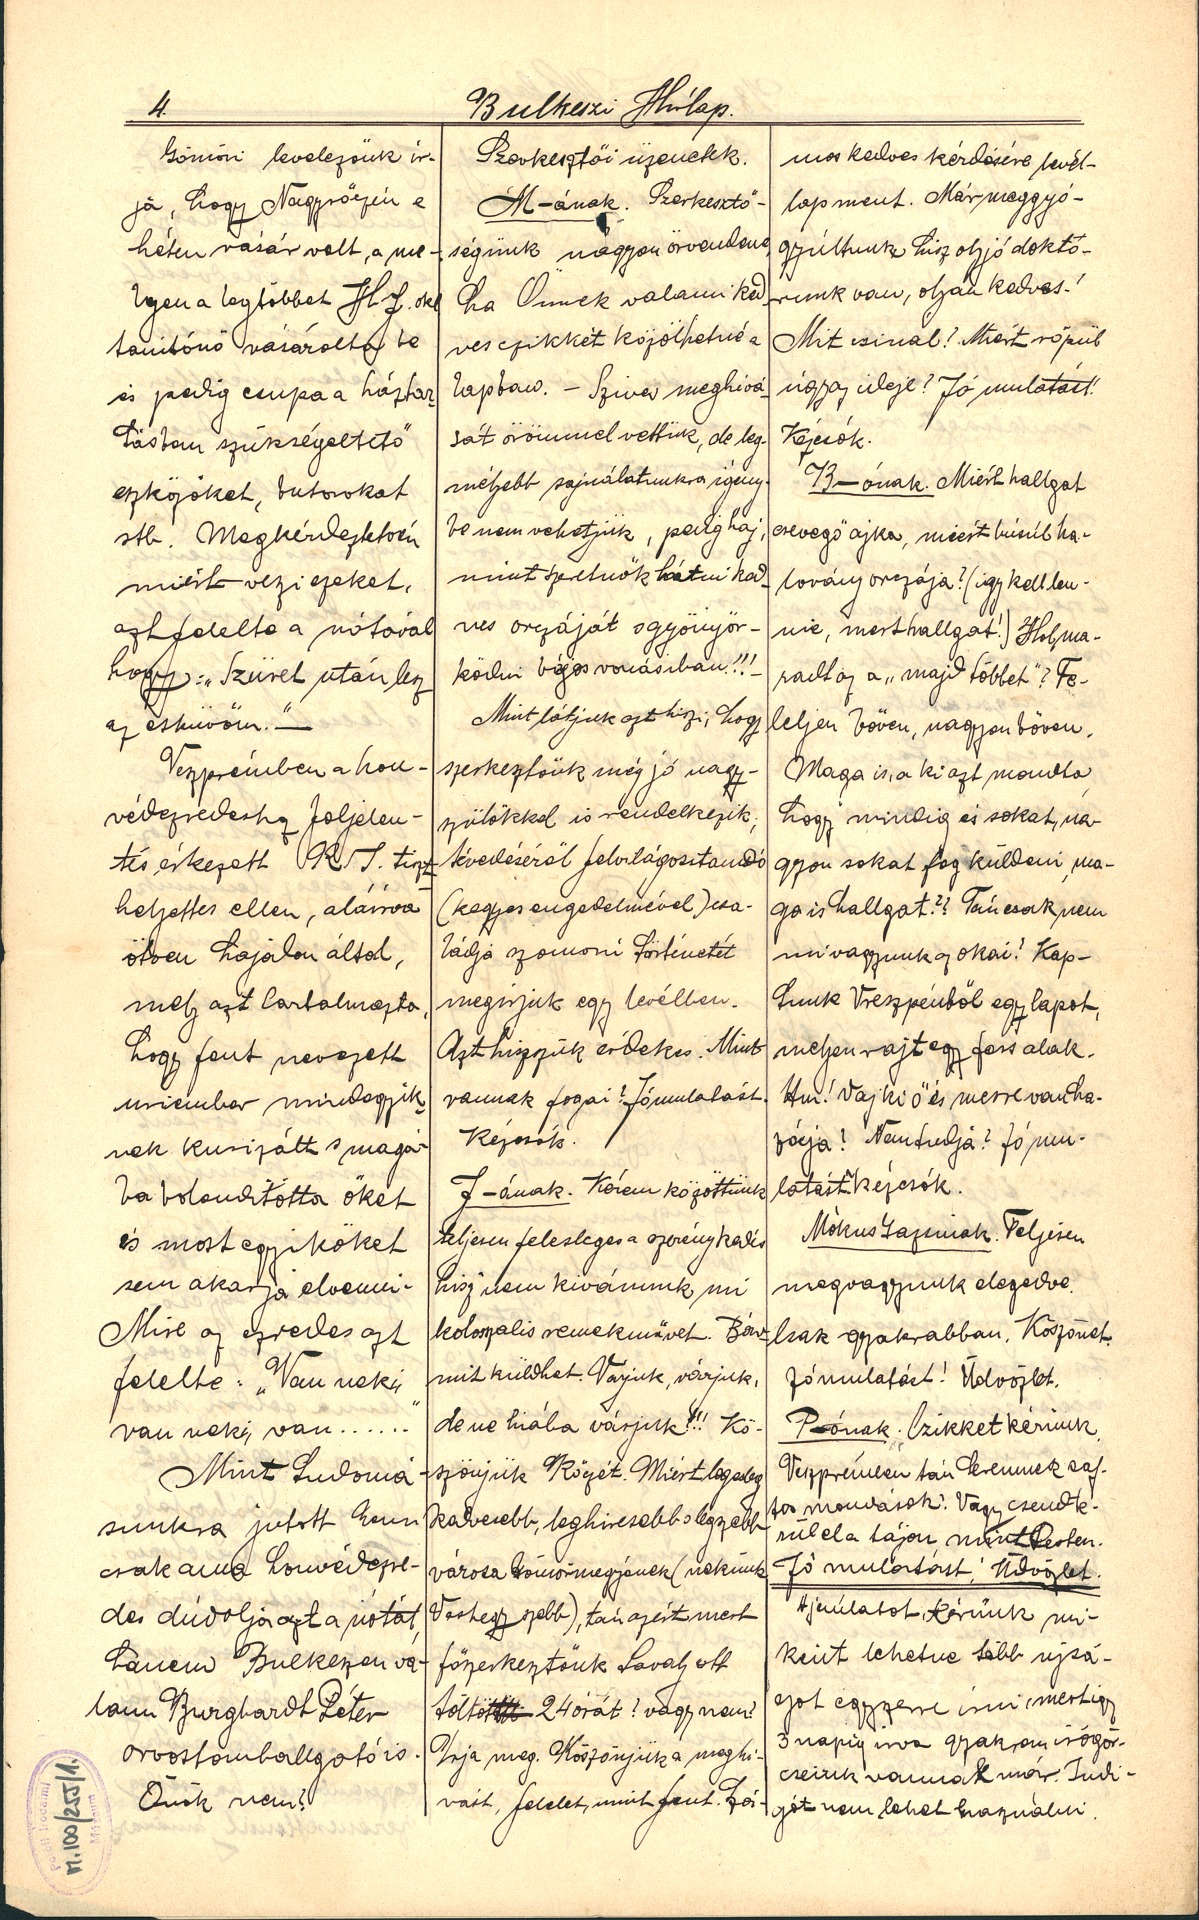 4.
Bulkeszi Hírlap.
Gömöri levelezőnk ír-
ja, hogy Nagyrőczén e
héten vásár volt, a me-
lyen a legtöbbet H. J. okl
tanítónő vásárolta be
és pedig csupa a háztar-
tásban szükségeltető
eszközöket, butorokat
stb. Megkérdeztetvén
miért veszi ezeket,
azt felelte a nótával
hogy: „Szüret után lesz
az esküvőm." —
Veszprémben a hon-
védezredeshez följelen-
tés érkezett K. T. tiszt
helyettes ellen, aláírva
ötven hajadon által,
mely azt tartalmazta,
hogy fent nevezett
uriember mindegyik-
nek kurizált s magá-
ba bolondította őket
és most egyiköket
sem akarja elvenni-
Mire az ezredes azt
felelte: „Van neki,
van neki, van ......"
Mint tudomá-
sunkra jutott nem
csak ama honvédezre-
des dúdolja azt a nótát,
hanem Bulkeszen va-
lami Burghardt Péter
orvostanhallgató is.
Önök nem?
Szerkesztői üzenetek.
M-ának. Szerkesztő-
ségünk nagyon örvendene
ha Önnek valami ked-
ves czikkét közölhetné a
lapban. - Szives meghívá-
sát örömmel vettük, de leg-
mélyebb sajnálatunkra igény-
be nem vehetjük, pedig haj,
mint szeretnők látni ked-
ves orczáját s gyönyör-
ködni bájos vonásiban!!!-
Mint látjuk azt hiszi, hogy
szerkesztőnk még jó nagy-
szülőkkel is rendelkezik;
tévedéséről felvilágosítandó
(kegyes engedelmével) csa-
ládja szomorú történetét
megírjuk egy levélben.
Azt hisszük érdekes. Mint
vannak fogai? Jó mulatást.
Kézcsók.
J-ának. Kérem közöttünk
teljesen felesleges a szerénykedés
hisz nem kivánunk mi
kolosszalis remekművet. Bár-
mit küldhet. Várjuk, várjuk,
de ne hiába várjuk!!! Kö-
szönjük Rőzét. Miért legesleg
kedvesebb, leghiresebb s legszebb
városa Gömörmegyének (nekünk
Vashegy szebb), tán azért mert
főszerkesztőnk tavaly ott
töltött 24 órát? vagy nem?
Írja meg. Köszönjük a meghi-
vást, felelet, mint fent. Szá-
mos kedves kérdésére levél-
lap ment. Már meggyó-
gyúltunk hisz oly jó dokto-
runk van, olyan kedves!
Mit csinál? Miért röpül
úgy az ideje? Jó mulatást!
Kézcsók.
B-ónak. Miért hallgat
csevegő ajka, miért búsúl ha-
lovány orczája? (így kell len-
nie, mert hallgat!) Hol ma-
radt az a „majd többet"? Fe-
leljen bőven, nagyon bőven.
Maga is, a ki azt mondta
hogy mindig és sokat, na-
gyon sokat fog küldeni, ma-
ga is hallgat?? Tán csak nem
mi vagyunk az okai! Kap-
tunk Vreszpénből egy lapot,
melyen rajt egy fess alak.
Hm! Vajki ő és merre van ha-
zája! Nem tudja? Jó mu-
latást. Kézcsók.
Mókus Zazinak. Teljesen
megvagyunk elegedve.
Csak gyakrabban. Köszönet.
Jó mulatást! Üdvözlet.
P-ónak. Czikket kérünk.
Veszprémben tán teremnek saf-
tos mondások. Vagy csend ké-
rül el a tájon mint Pesten.
Jó mulatást! Üdvözlet.
Ajánlatot kérünk mi-
ként lehetne több újsá-
got egyszerre írni mert így
3 napig írva gyakran írógör-
cseink vannak már. Indi-
gót nem lehet használni.
M.100/255/1.